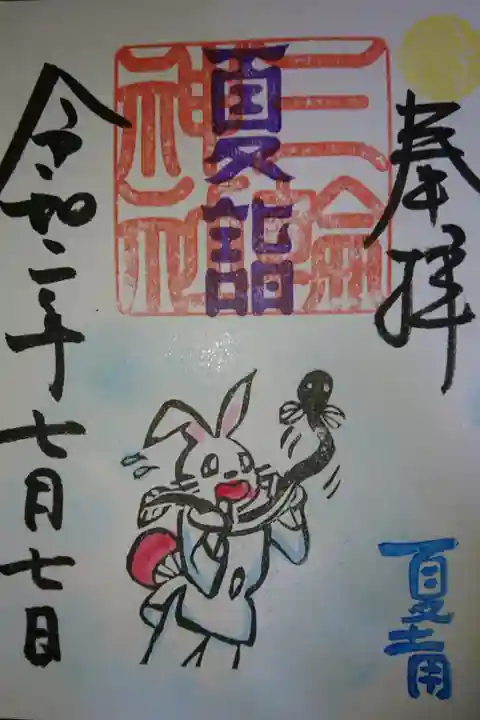 奉拝
三輪神社
夏詣
夏詣
令和二年七月七日